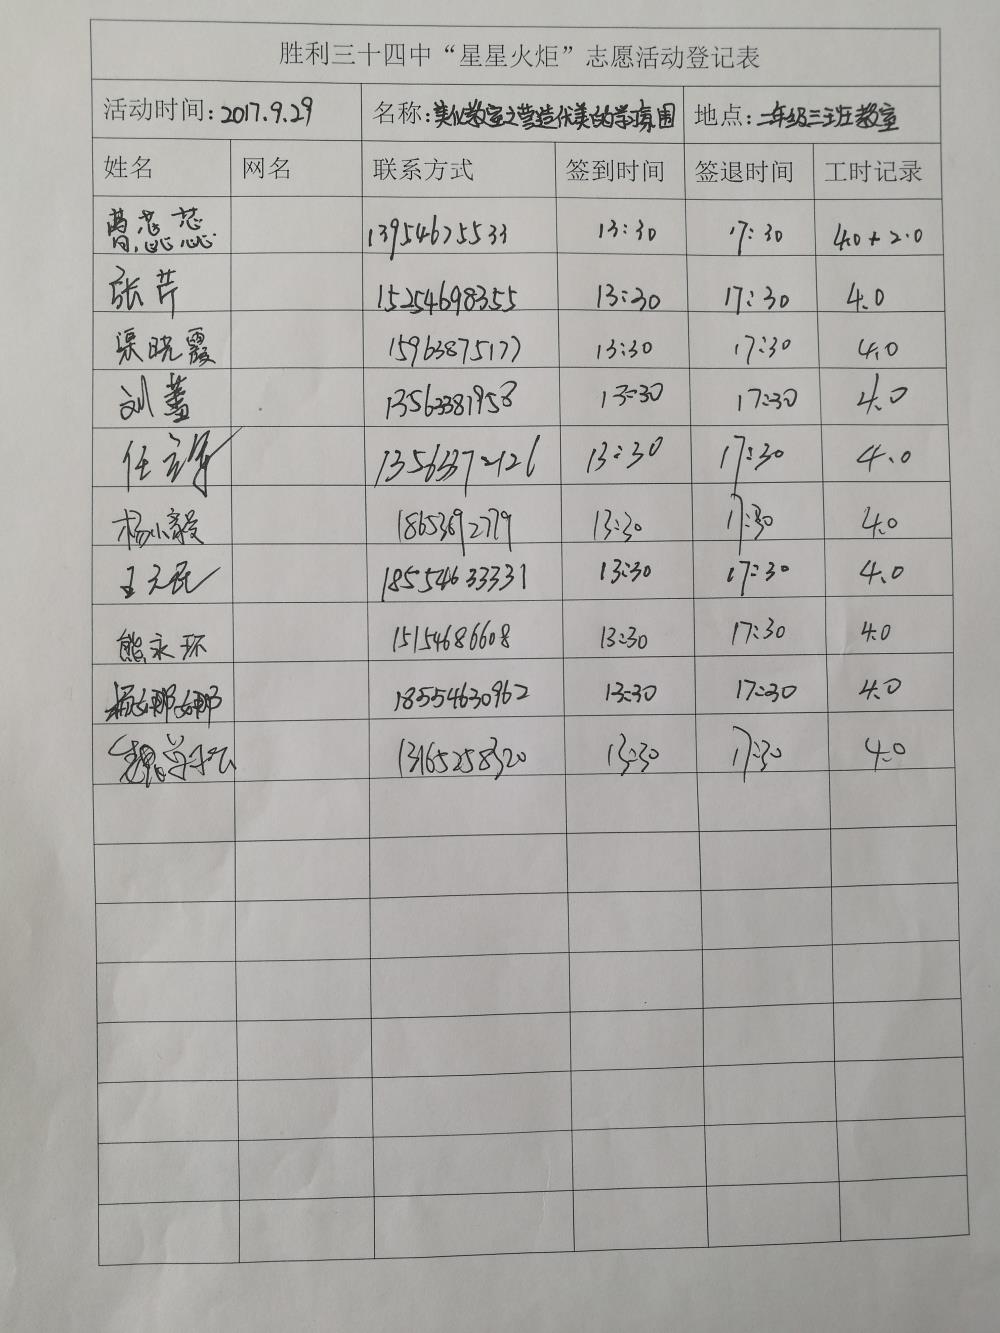 胜利三十四中“星星火炬”志愿活动登记表
活动时间: 2017.9.29 名称: 美化教室之营造优美的学习氛围 地点: 二年级三班教室
姓名 网名 联系方式 签到时间 签退时间 工时记录
曹蕊蕊 13954675533 13:30 17:30 4.0+2.0
张芹 15254698355 13:30 17:30 4.0
渠晓霞 15963875177 13:30 17:30 4.0
刘蕾 13563381958 13:30 17:30 4.0
任 13563372126 13:30 17:30 4.0
杨小毅 18653692779 13:30 17:30 4.0
王 18554633331 13:30 17:30 4.0
熊永环 15154686608 13:30 17:30 4.0
杨娜娜 18554630962 13:30 17:30 4.0
魏 13165258320 13:30 17:30 4.0